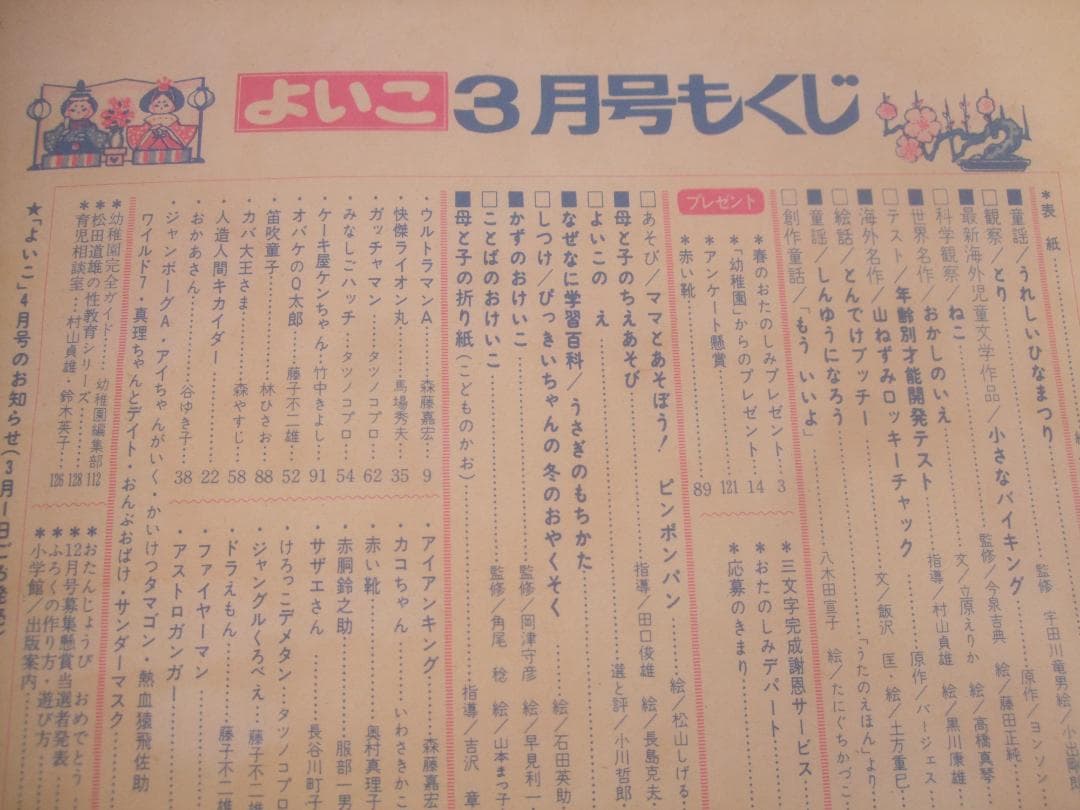 よいこ 3月号もくじ
*表紙
■童謡/うれしいひなまつり
□観察/とり 監修 宇田川竜男
■最新海外児童文学作品/小さなバイキング 原作/ヨンソン
□科学観察/ねこ 監修/今泉吉典 絵/藤田正純
■世界名作/おかしのいえ 文/立原えりか 絵/高橋真琴
□テスト/年齢別才能開発テスト 指導/村山貞雄 絵/黒川康雄
■海外名作/山ねずみロッキーチャック 原作/バージェス
□絵話/とんでけブッチー 文/飯沢 匡・絵/土方重巳
■童謡/しんゆうになろう 「うたのえほん」より
□創作童話/「もう いいよ」 八木田宣子 絵/たにぐちかづこ
プレゼント
*春のおたのしみプレゼント 3
*「幼稚園」からのプレゼント 14
*アンケート懸賞 121
*赤い靴 89
*三文字完成謝恩サービス
*おたのしみデパート
*応募のきまり
□あそび/ママとあそぼう! ピンポンパン 絵/松山しげる
■母と子のちえあそび 指導/田口俊雄 絵/長島克夫
□よいこの え 選と評/小川哲郎
■なぜなに学習百科/うさぎのもちかた 絵/石田英助
□しつけ/ぴっきいちゃんの冬のおやくそく
■かずのおけいこ 監修/岡津守彦 絵/早見利一
□ことばのおけいこ 監修/角尾 稔 絵/山本まつ子
■母と子の折り紙(こどものかお) 指導/吉沢 章
・ウルトラマンA 森藤嘉宏 9
・快傑ライオン丸 馬場秀夫 35
・ガッチャマン タツノコプロ 62
・みなしごハッチ タツノコプロ 54
・ケーキ屋ケンちゃん 竹中きよし 91
・オバケのQ太郎 藤子不二雄 52
・笛吹童子 林ひさお 88
・カバ大王さま 森やすじ 58
・人造人間キカイダー 22
・おかあさん 谷ゆき子 38
・ジャンボーグA・アイちゃんがいく・かいけつタマゴン・熱血猿飛佐助
ワイルド7・真理ちゃんとデイト・おんぶおばけ・サンダーマスク
・アイアンキング 森藤嘉宏
・カコちゃん いわさきかこ
・赤い靴 奥村真理子
・赤胴鈴之助 服部一男
・サザエさん 長谷川町子
・けろっこデメタン タツノコプロ
・ジャングルくろべえ 藤子不二
・ドラえもん 藤子不二雄
・ファイヤーマン
・アストロガンガー
*幼稚園完全ガイド 幼稚園編集部 112
*松田道雄の性教育シリーズ 128
*育児相談室 村山貞雄・鈴木英子 126
*おたんじょうび おめでとう
*12月号募集懸賞当選者発表
*ふろくの作り方・遊び方
*小学館/出版案内
★「よいこ」4月号のお知らせ(3月1日ごろ発売)